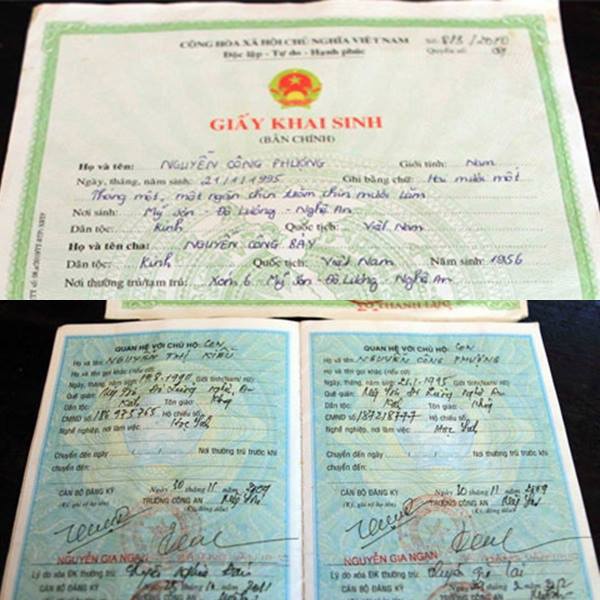 CỘNG HÒA XÃ HỘI CHỦ NGHĨA VIỆT NAM
Độc lập - Tự do - Hạnh phúc
Số: 813/2010
Quyển số:
GIẤY KHAI SINH
(BẢN CHÍNH)
Họ và tên: NGUYỄN CÔNG PHƯỢNG Giới tính: Nam
Ngày, tháng, năm sinh: 21/1/1995 Ghi bằng chữ: Hai mươi mốt
Tháng một, một ngàn chín trăm chín mươi lăm
Nơi sinh: Mỹ Sơn - Đô Lương - Nghệ An
Dân tộc: Kinh Quốc tịch: Việt Nam
Họ và tên cha: NGUYỄN CÔNG BẢY
Dân tộc: Kinh Quốc tịch: Việt Nam Năm sinh: 1956
Nơi thường trú/tạm trú: Xóm 6 - Mỹ Sơn - Đô Lương - Nghệ An
QUAN HỆ VỚI CHỦ HỘ: CON
Họ và tên: NGUYỄN THỊ KIỀU
Họ và tên gọi khác (nếu có):
Ngày, tháng, năm sinh: 19.8.1990 Giới tính(Nam/ nữ):
Quê quán: Mỹ Sơn, Đô Lương, Nghệ An
Dân tộc: Kinh Tôn giáo: Không
CMND số: 186975765 Hộ chiếu số:
Nghề nghiệp, nơi làm việc: Học sinh
Chuyển đến ngày Nơi thường trú trước khi
chuyển đến:
Ngày 30 tháng 11 năm 2009
CÁN BỘ ĐĂNG KÝ TRƯỞNG CÔNG AN
(Ký, ghi rõ họ tên) (Ký, đóng dấu)
NGUYỄN GIA NGÂN
Lý do xóa ĐK thường trú:
QUAN HỆ VỚI CHỦ HỘ: CON
Họ và tên: NGUYỄN CÔNG PHƯỢNG
Họ và tên gọi khác (nếu có):
Ngày, tháng, năm sinh: 21.1.1995 Giới tính(Nam/ nữ):
Quê quán: Mỹ Sơn Đô Lương Nghệ An
Dân tộc: Kinh Tôn giáo: Không
CMND số: 187218777 Hộ chiếu số:
Nghề nghiệp, nơi làm việc: Học sinh
Chuyển đến ngày Nơi thường trú trước khi
chuyển đến:
Ngày 30 tháng 11 năm 2009
CÁN BỘ ĐĂNG KÝ TRƯỞNG CÔNG AN
(Ký, ghi rõ họ tên) (Ký, đóng dấu)
NGUYỄN GIA NGÂN
Lý do xóa ĐK thường trú: